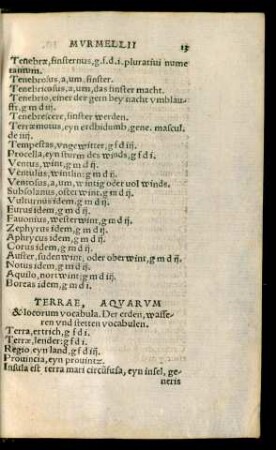 MVRMELLII 13
Tenebræ, finsternus, g.f.d.i. pluratiui nume
tantum.
Tenebrosus, a, um, finster.
Tenebricosus, a, um, das finster macht.
Tenebrio, einer der gern bey nacht vmblauf
fft, g m d iij.
Tenebrescere, finster werden.
Terræmotus, eyn erdbidumb, gene. mascul.
de iiij.
Tempestas, vngewitter, g f d iij.
Procella, eyn sturm des winds, g f d i.
Ventus, wint, g m d ij.
Ventulus, wintlin: g m d ij.
Ventosus, a, um, wintig oder uol winds.
Subsolanus, ostert wint, g m d ij.
Vulturnus idem, g m d ij.
Eurus idem, g m d ij.
Fauonius, westerwint, g m d ij.
Zephyrus idem, g m d ij.
Aphrycus idem, g m d ij.
Corus idem, g m d ij.
Auster, sudenwint, oder oberwint, g m d ij
Notus idem, g m d ij.
Aquilo, nortwint, g m d iij
Boreas idem, g m d i.
TERRAE, AQVARVM
& locorum vocabula. Der erden, wasse
ren vnd stetten vocabulen.
Terra, ertrich, g f d i.
Terræ, lender: g f d i.
Regio, eyn land, g f d iij.
Prouincia, eyn prouintz.
Insula est terra mari circūfusa, eyn insel, ge
neris